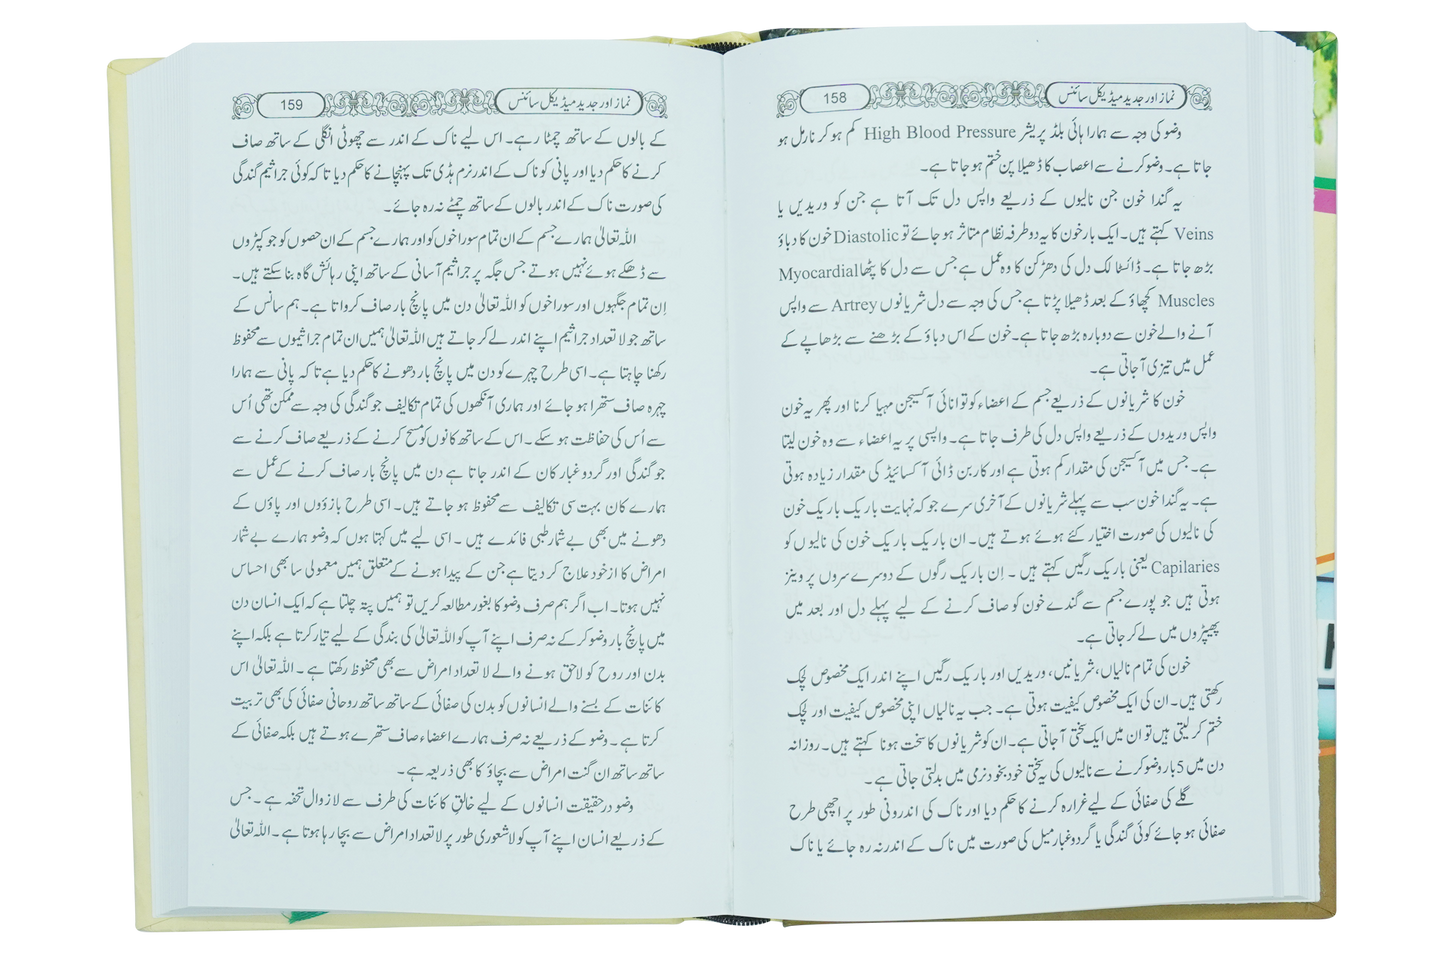 نماز اور جدید میڈیکل سائنس 158
وضو کی وجہ سے ہمارا ہائی بلڈ پریشر High Blood Pressure کم ہو کر نارمل ہو
جاتا ہے۔ وضو کرنے سے اعصاب کا ڈھیلا پن ختم ہو جاتا ہے۔
یہ گندا خون جن نالیوں کے ذریعے واپس دل تک آتا ہے جن کو وریدیں یا
Veins کہتے ہیں۔ ایک بار خون کا یہ دو طرفہ نظام متاثر ہو جائے تو Diastolic خون کا دباؤ
بڑھ جاتا ہے۔ ڈائسٹا لک دل کی دھڑکن کا وہ عمل ہے جس سے دل کا پٹھا Myocardial
Muscles کھچاؤ کے بعد ڈھیلا پڑتا ہے جس کی وجہ سے دل شریانوں Artrey سے واپس
آنے والے خون سے دوبارہ بڑھ جاتا ہے۔ خون کے اس دباؤ کے بڑھنے سے بڑھاپے کے
عمل میں تیزی آ جاتی ہے۔
خون کا شریانوں کے ذریعے جسم کے اعضاء کو توانائی آکسیجن مہیا کرنا اور پھر یہ خون
واپس وریدوں کے ذریعے واپس دل کی طرف جاتا ہے۔ واپسی پر یہ اعضاء سے وہ خون لیتا
ہے۔ جس میں آکسیجن کی مقدار کم ہوتی ہے اور کاربن ڈائی آکسائیڈ کی مقدار زیادہ ہوتی
ہے۔ یہ گندا خون سب سے پہلے شریانوں کے آخری سرے جو کہ نہایت باریک باریک خون
کی نالیوں کی صورت اختیار کئے ہوئے ہوتے ہیں۔ ان باریک باریک خون کی نالیوں کو
Capilaries یعنی باریک رگیں کہتے ہیں ۔ اِن باریک رگوں کے دوسرے سروں پر وینز
ہوتی ہیں جو پورے جسم سے گندے خون کو صاف کرنے کے لیے پہلے دل اور بعد میں
پھیپڑوں میں لے کر جاتی ہے۔
خون کی تمام نالیاں، شریانیں، وریدیں اور باریک رگیں اپنے اندر ایک مخصوص لچک
رکھتی ہیں۔ ان کی ایک مخصوص کیفیت ہوتی ہے۔ جب یہ نالیاں اپنی مخصوص کیفیت اور لچک
ختم کر لیتی ہیں تو ان میں ایک سختی آ جاتی ہے۔ ان کو شریانوں کا سخت ہونا کہتے ہیں۔ روزانہ
دن میں 5 بار وضو کرنے سے نالیوں کی یہ سختی خود بخود نرمی میں بدلتی جاتی ہے۔
گلے کی صفائی کے لیے غرارہ کرنے کا حکم دیا اور ناک کی اندرونی طور پر اچھی طرح
صفائی ہو جائے کوئی گندگی یا گرد و غبار میل کی صورت میں ناک کے اندر نہ رہ جائے یا ناک
نماز اور جدید میڈیکل سائنس 159
کے بالوں کے ساتھ چمٹا رہے۔ اس لیے ناک کے اندر سے چھوٹی انگلی کے ساتھ صاف
کرنے کا حکم دیا اور پانی کو ناک کے اندر نرم ہڈی تک پہنچانے کا حکم دیا تا کہ کوئی جراثیم گندگی
کی صورت ناک کے اندر بالوں کے ساتھ چمٹے نہ رہ جائے۔
اللہ تعالیٰ ہمارے جسم کے ان تمام سوراخوں کو اور ہمارے جسم کے ان حصوں کو جو کپڑوں
سے ڈھکے ہوئے نہیں ہوتے جس جگہ پر جراثیم آسانی کے ساتھ اپنی رہائش گاہ بنا سکتے ہیں۔
اِن تمام جگہوں اور سوراخوں کو اللہ تعالیٰ دن میں پانچ بار صاف کرواتا ہے۔ ہم سانس کے
ساتھ جو لا تعداد جراثیم اپنے اندر لے کر جاتے ہیں اللہ تعالیٰ ہمیں ان تمام جراثیموں سے محفوظ
رکھنا چاہتا ہے۔ اسی طرح چہرے کو دن میں پانچ بار دھونے کا حکم دیا ہے تا کہ پانی سے ہمارا
چہرہ صاف ستھرا ہو جائے اور ہماری آنکھوں کی تمام تکالیف جو گندگی کی وجہ سے ممکن تھی اُس
سے اُس کی حفاظت ہو سکے۔ اس کے ساتھ کانوں کو مسح کرنے کے ذریعے صاف کرنے سے
جو گندگی اور گرد و غبار کان کے اندر جاتا ہے دن میں پانچ بار صاف کرنے کے عمل سے
ہمارے کان بہت سی تکالیف سے محفوظ ہو جاتے ہیں۔ اسی طرح بازؤوں اور پاؤں کے
دھونے میں بھی بے شمار طبی فائدے ہیں ۔ اسی لیے میں کہتا ہوں کہ وضو ہمارے بے شمار
امراض کا از خود علاج کر دیتا ہے جن کے پیدا ہونے کے متعلق ہمیں معمولی سا بھی احساس
نہیں ہوتا۔ اب اگر ہم صرف وضو کا بغور مطالعہ کریں تو ہمیں پتہ چلتا ہے کہ ایک انسان دن
میں پانچ بار وضو کر کے نہ صرف اپنے آپ کو اللہ تعالیٰ کی بندگی کے لیے تیار کرتا ہے بلکہ اپنے
بدن اور روح کو لاحق ہونے والے لا تعداد امراض سے بھی محفوظ رکھتا ہے ۔ اللہ تعالیٰ اس
کائنات کے بسنے والے انسانوں کو بدن کی صفائی کے ساتھ ساتھ روحانی صفائی کی بھی تربیت
کرتا ہے۔ وضو کے ذریعے نہ صرف ہمارے اعضاء صاف ستھرے ہوتے ہیں بلکہ صفائی کے
ساتھ ساتھ ان گنت امراض سے بچاؤ کا بھی ذریعہ ہے۔
وضو درحقیقت انسانوں کے لیے خالقِ کائنات کی طرف سے لازوال تحفہ ہے ۔ جس
کے ذریعے انسان اپنے آپ کو لاشعوری طور پر لا تعداد امراض سے بچا رہا ہوتا ہے۔ اللہ تعالیٰ